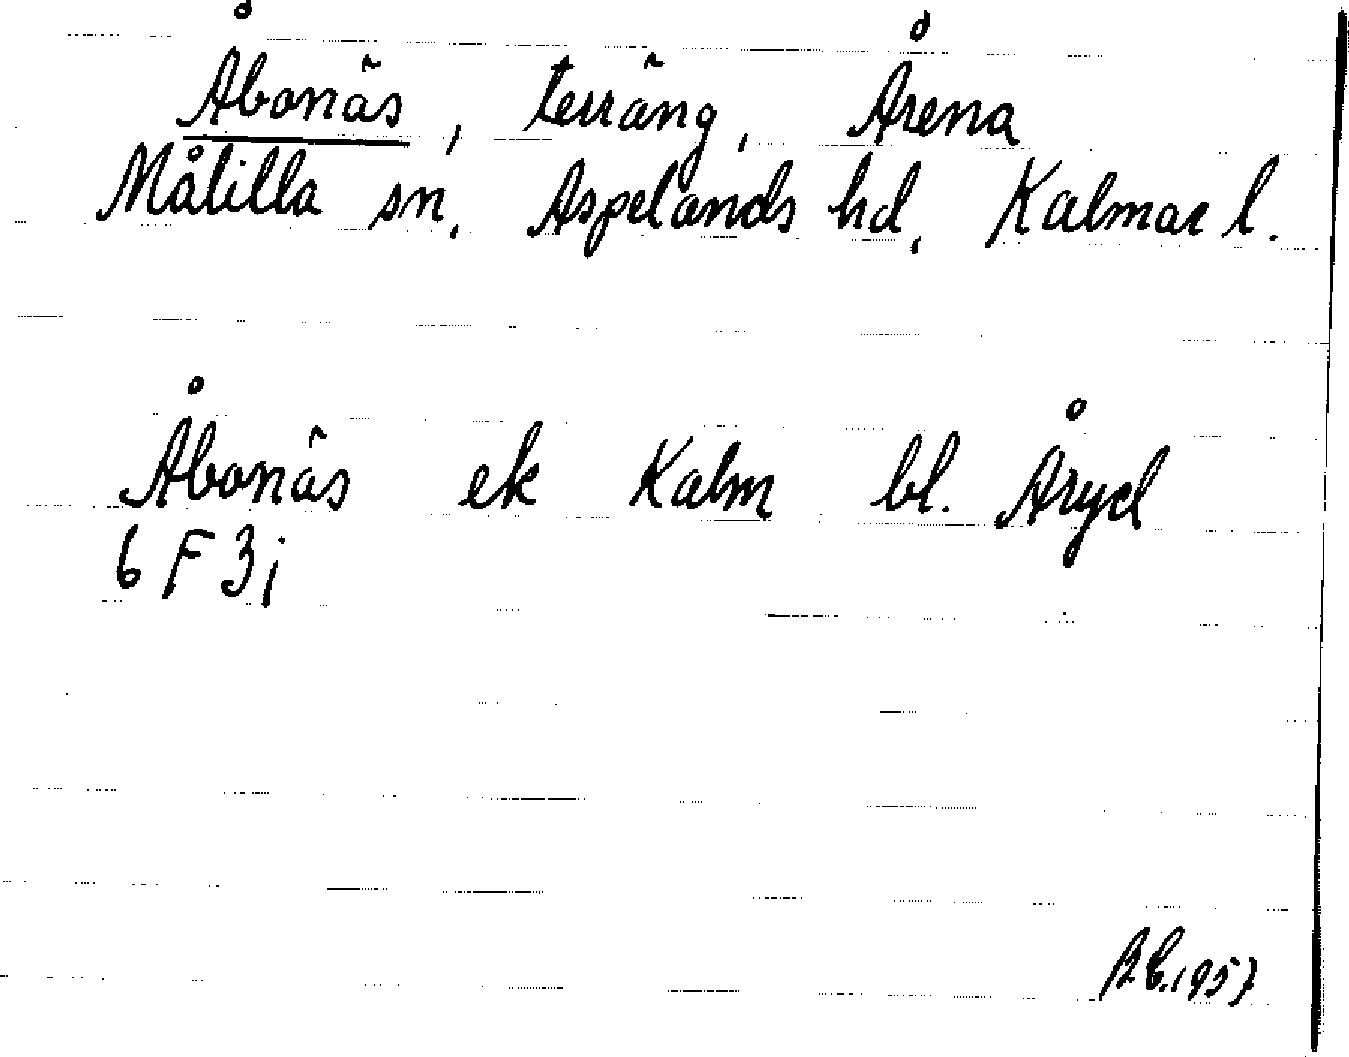 Åbonäs, terräng, Årena
Målilla sn. Aspelands hd. Kalmar l.
Åbonäs ek Kalm bl. Åryd
6 F 3i
1957